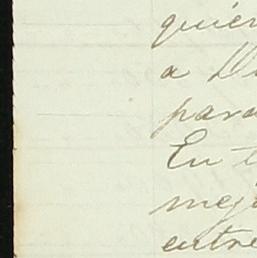 quier
a Di
para
En t
mejo
entre